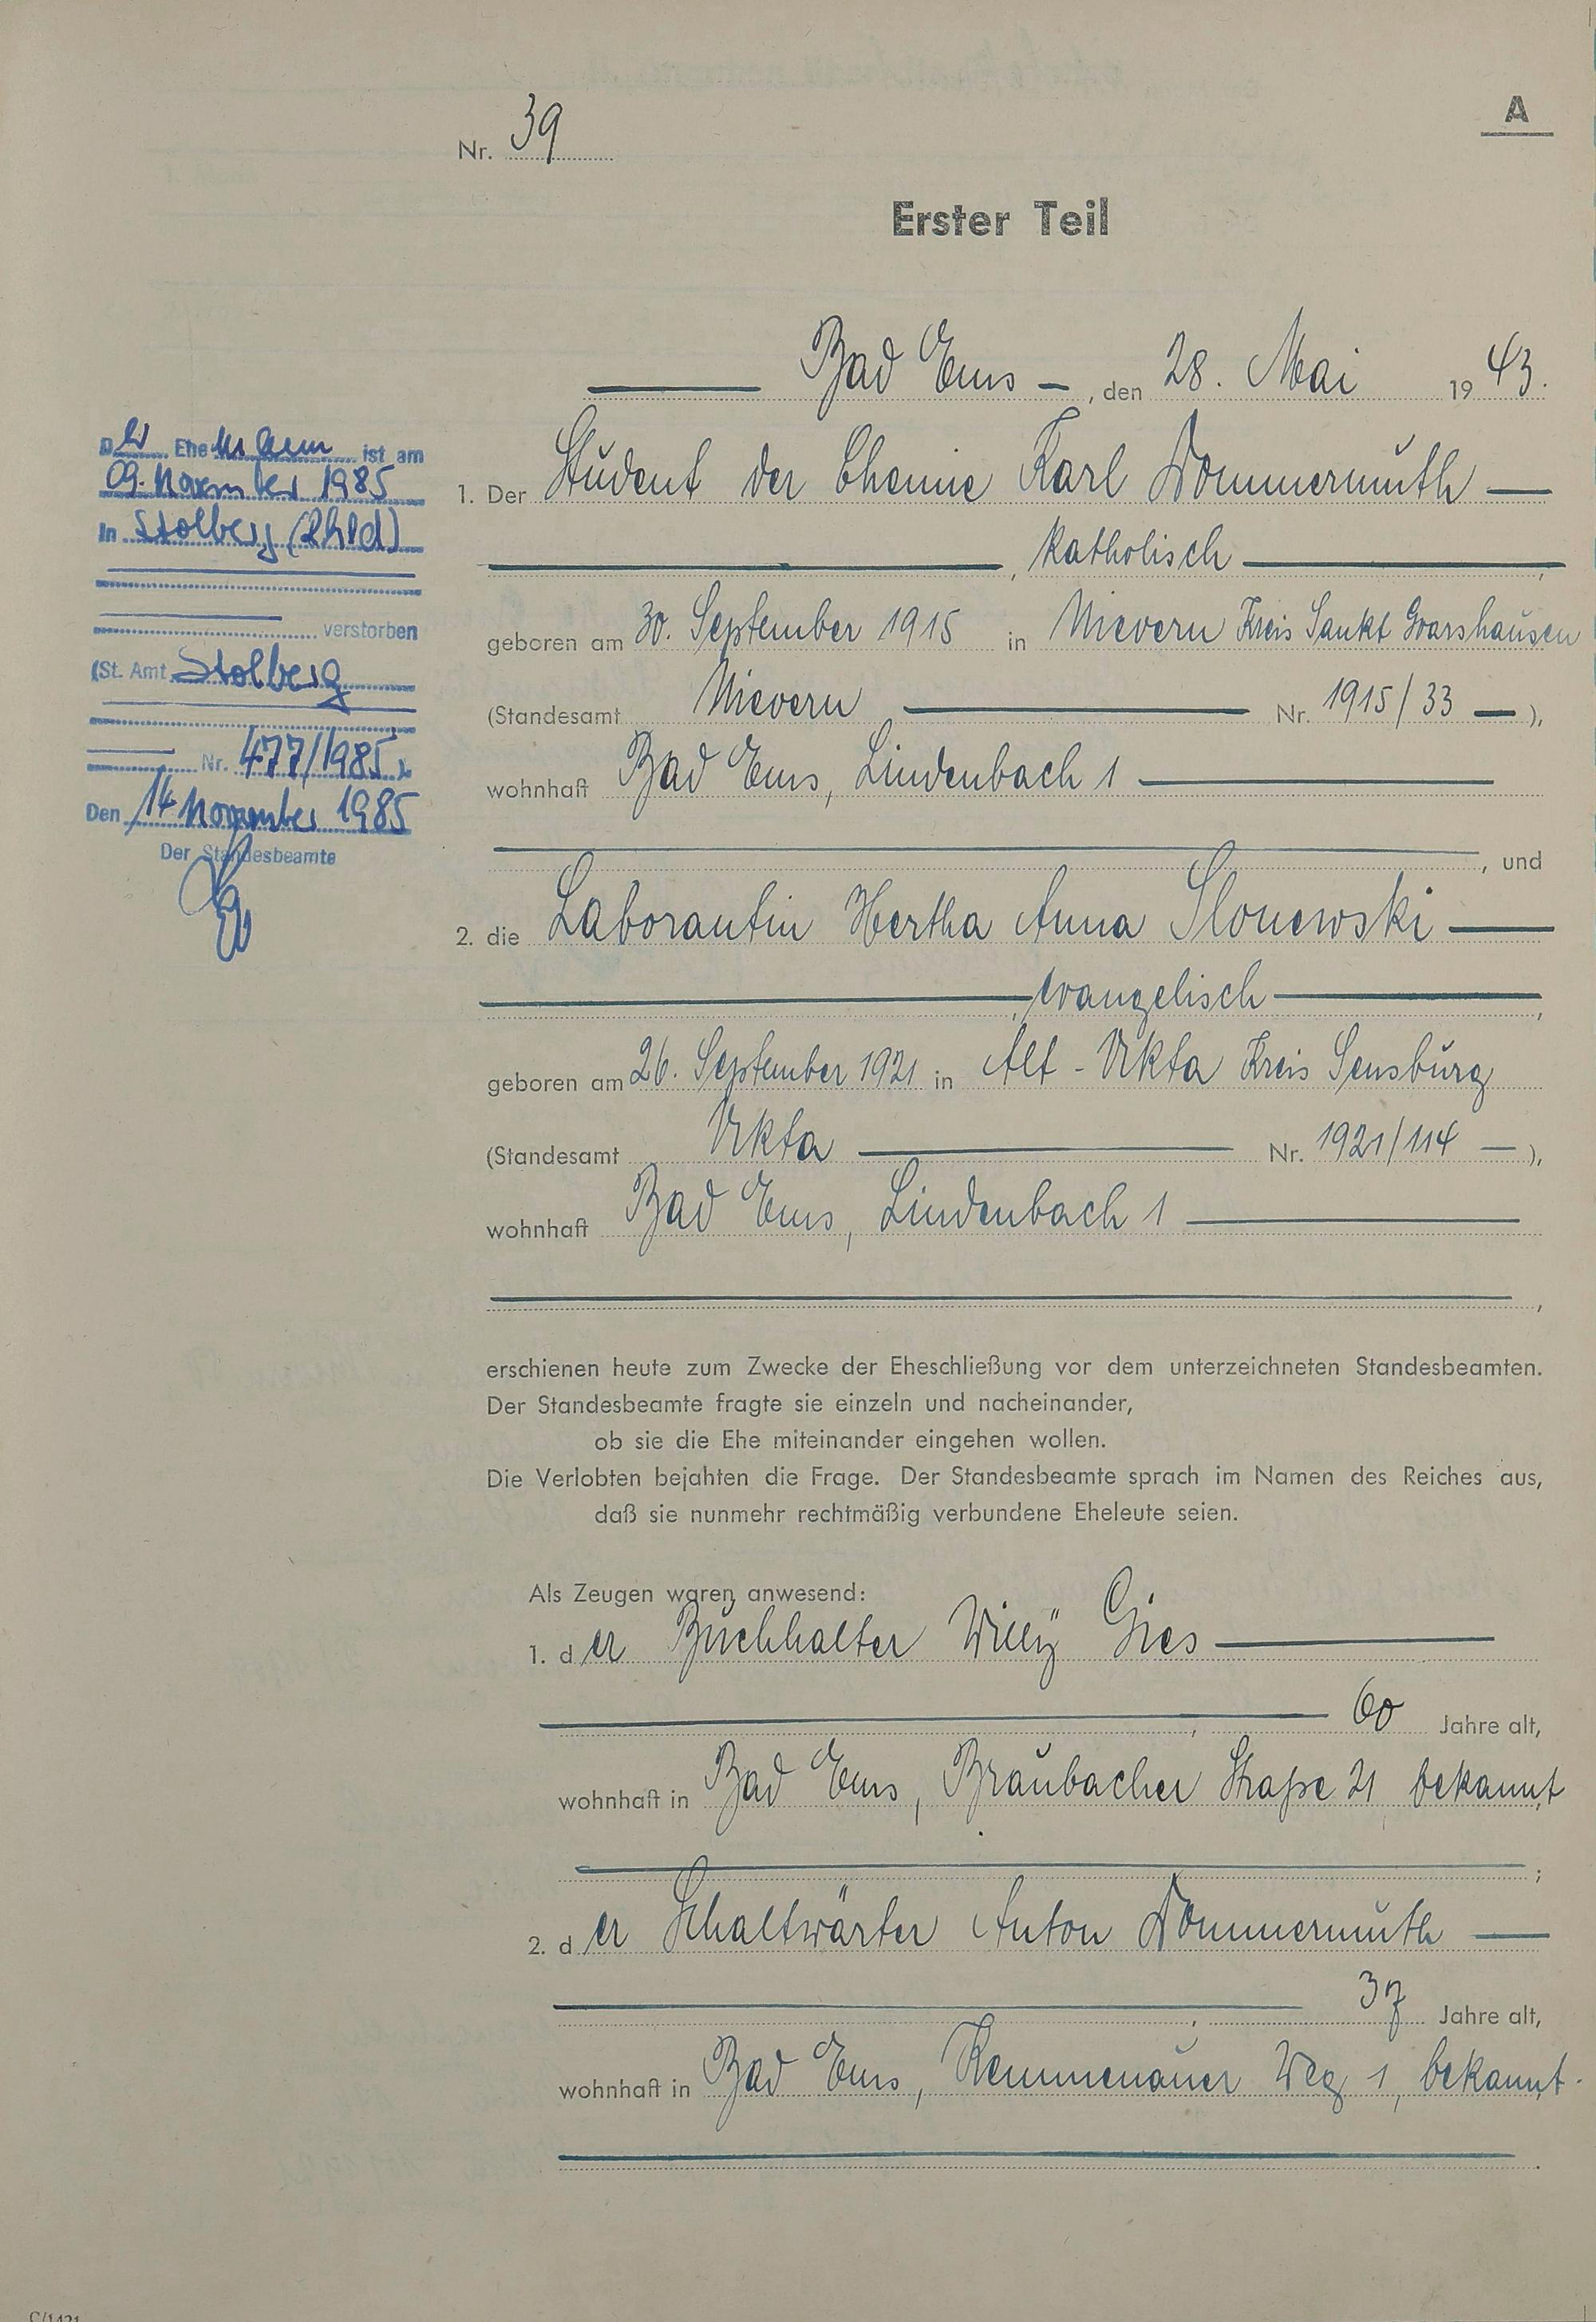 A
Nr. 39
Erster Teil
Bad Ems, den 28. Mai 1943.
1. Der Student der Chemie Karl Dommermuth
, katholisch,
geboren am 30. September 1915 in Nievern Kreis Sankt Goarshausen
(Standesamt Nievern Nr. 1915/33),
wohnhaft Bad Ems, Lindenbach 1
, und
2. die Laborantin Hertha Anna Slonewski
, evangelisch,
geboren am 26. September 1921 in Alt-Ukta Kreis Sensburg
(Standesamt Ukta Nr. 1921/114),
wohnhaft Bad Ems, Lindenbach 1
,
erschienen heute zum Zwecke der Eheschließung vor dem unterzeichneten Standesbeamten.
Der Standesbeamte fragte sie einzeln und nacheinander,
ob sie die Ehe miteinander eingehen wollen.
Die Verlobten bejahten die Frage. Der Standesbeamte sprach im Namen des Reiches aus,
daß sie nunmehr rechtmäßig verbundene Eheleute seien.
Als Zeugen waren anwesend:
1. der Buchhalter Willy Gies
, 60 Jahre alt,
wohnhaft in Bad Ems, Braubacher Straße 21 bekannt
;
2. der Schaltwärter Anton Dommermuth
, 37 Jahre alt,
wohnhaft in Bad Ems, Kemmenauer Weg 1, bekannt.
Der Ehemann ist am
09. November 1985
in Stolberg (Rhld)
verstorben
(St. Amt Stolberg
Nr. 477/1985)
Den 14 November 1985
Der Standesbeamte
C/1421